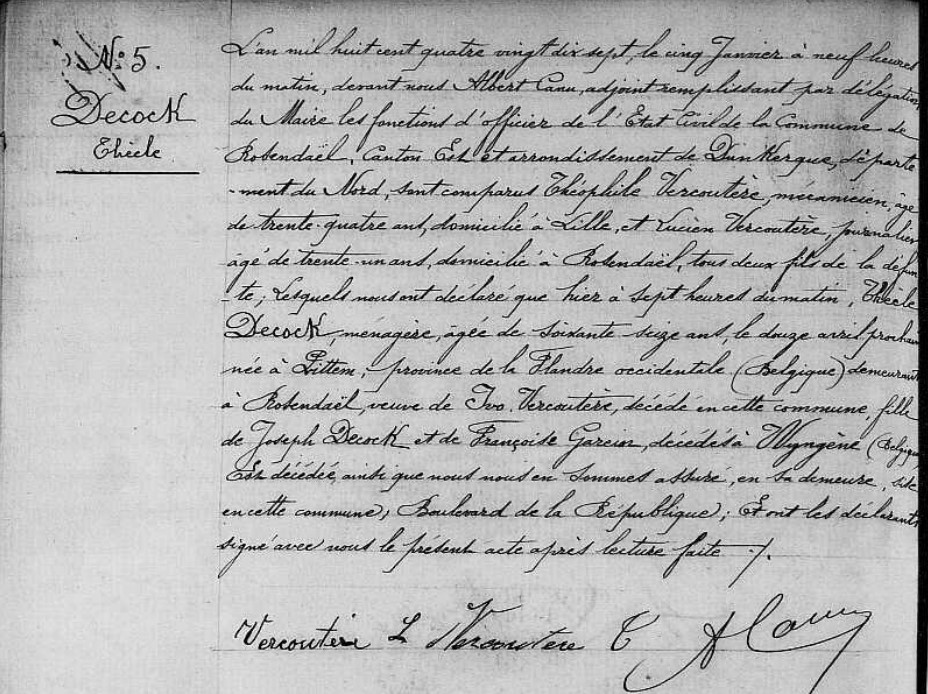 N° 5.
Decock
Thècle
L'an mil huit cent quatre vingt dix sept, le cinq Janvier à neuf heures
du matin, devant nous Albert Caou, adjoint remplissant par délégation
du Maire les fonctions d'officier de l'Etat Civil de la Commune de
Rosendaël, Canton Est et arrondissement de Dunkerque, départe
-ment du Nord, sont comparus Théophile Vercoutère, mécanicien, âgé
de trente-quatre ans, domicilié à Lille, et Lucien Vercoutère, journalier
âgé de trente-un ans, domicilié à Rosendaël, tous deux fils de la défun
-te; Lesquels nous ont déclaré que hier à sept heures du matin, Thècle
Decock, ménagère, âgée de soixante seize ans, le douze avril prochain
née à Pittem, province de la Flandre occidentale (Belgique) demeurant
à Rosendaël, veuve de Ivo Vercoutère, décédé en cette commune, fille
de Joseph Decock et de Françoise, décédés à Wyngène (Belgique)
Est décédée, ainsi que nous nous en sommes assuré, en sa demeure, sise
en cette commune, Boulevard de la République; Et ont les déclarants
signé avec nous le présent acte après lecture faite ./.
Vercoutère L Vercoutere T